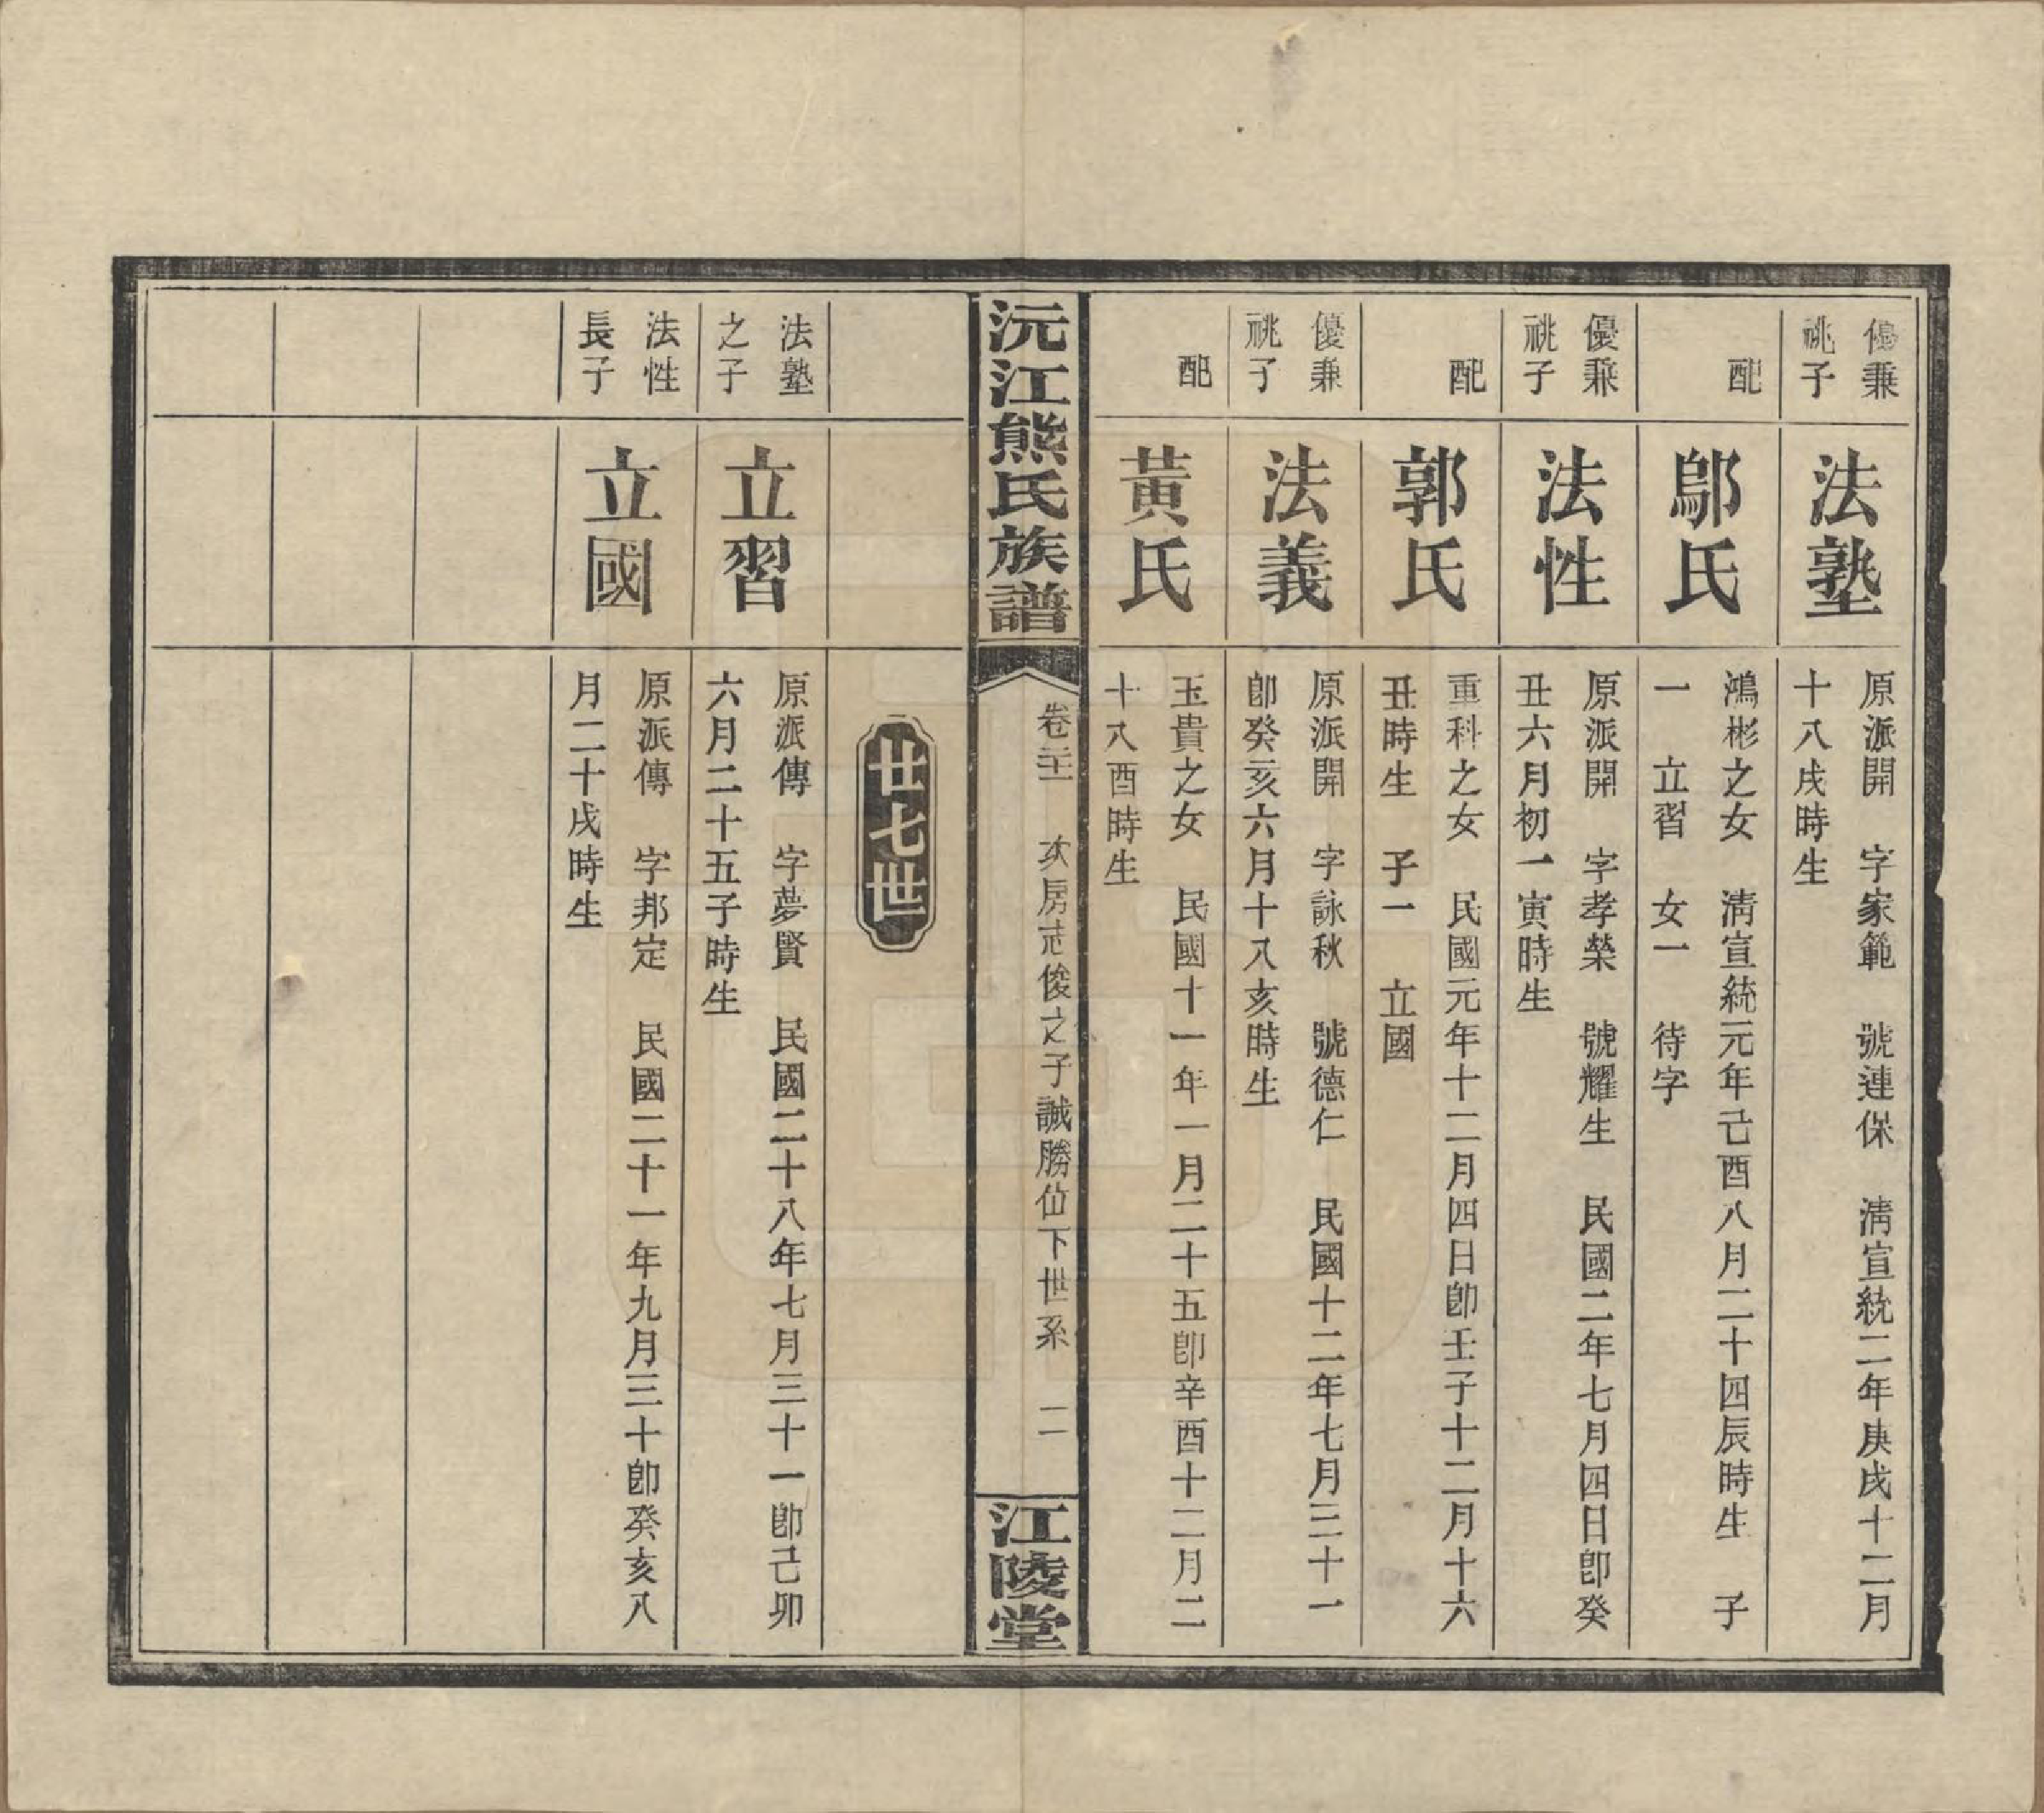 優兼
祧子
法塾
原派開　字家範　號連保　清宣統二年庚戌十二月
十八戌時生
配
鄔氏
鴻彬之女　清宣統元年己酉八月二十四辰時生　子
一　立習　女一　待字
優兼
祧子
法性
原派開　字孝榮　號耀生　民國二年七月四日卽癸
丑六月初一寅時生
配
郭氏
重科之女　民國元年十二月四日卽壬子十二月十六
丑時生　子一　立國
優兼
祧子
法義
原派開　字詠秋　號德仁　民國十二年七月三十一
卽癸亥六月十八亥時生
配
黃氏
玉貴之女　民國十一年一月二十五卽辛酉十二月二
十八酉時生
沅江熊氏族譜
卷　　次房志俊之子誠勝位下世系　二
江陵堂
廿七世
法塾
之子
立習
原派傳　字夢賢　民國二十八年七月三十一卽己卯
六月二十五子時生
法性
長子
立國
原派傳　字邦定　民國二十一年九月三十卽癸亥八
月二十戌時生